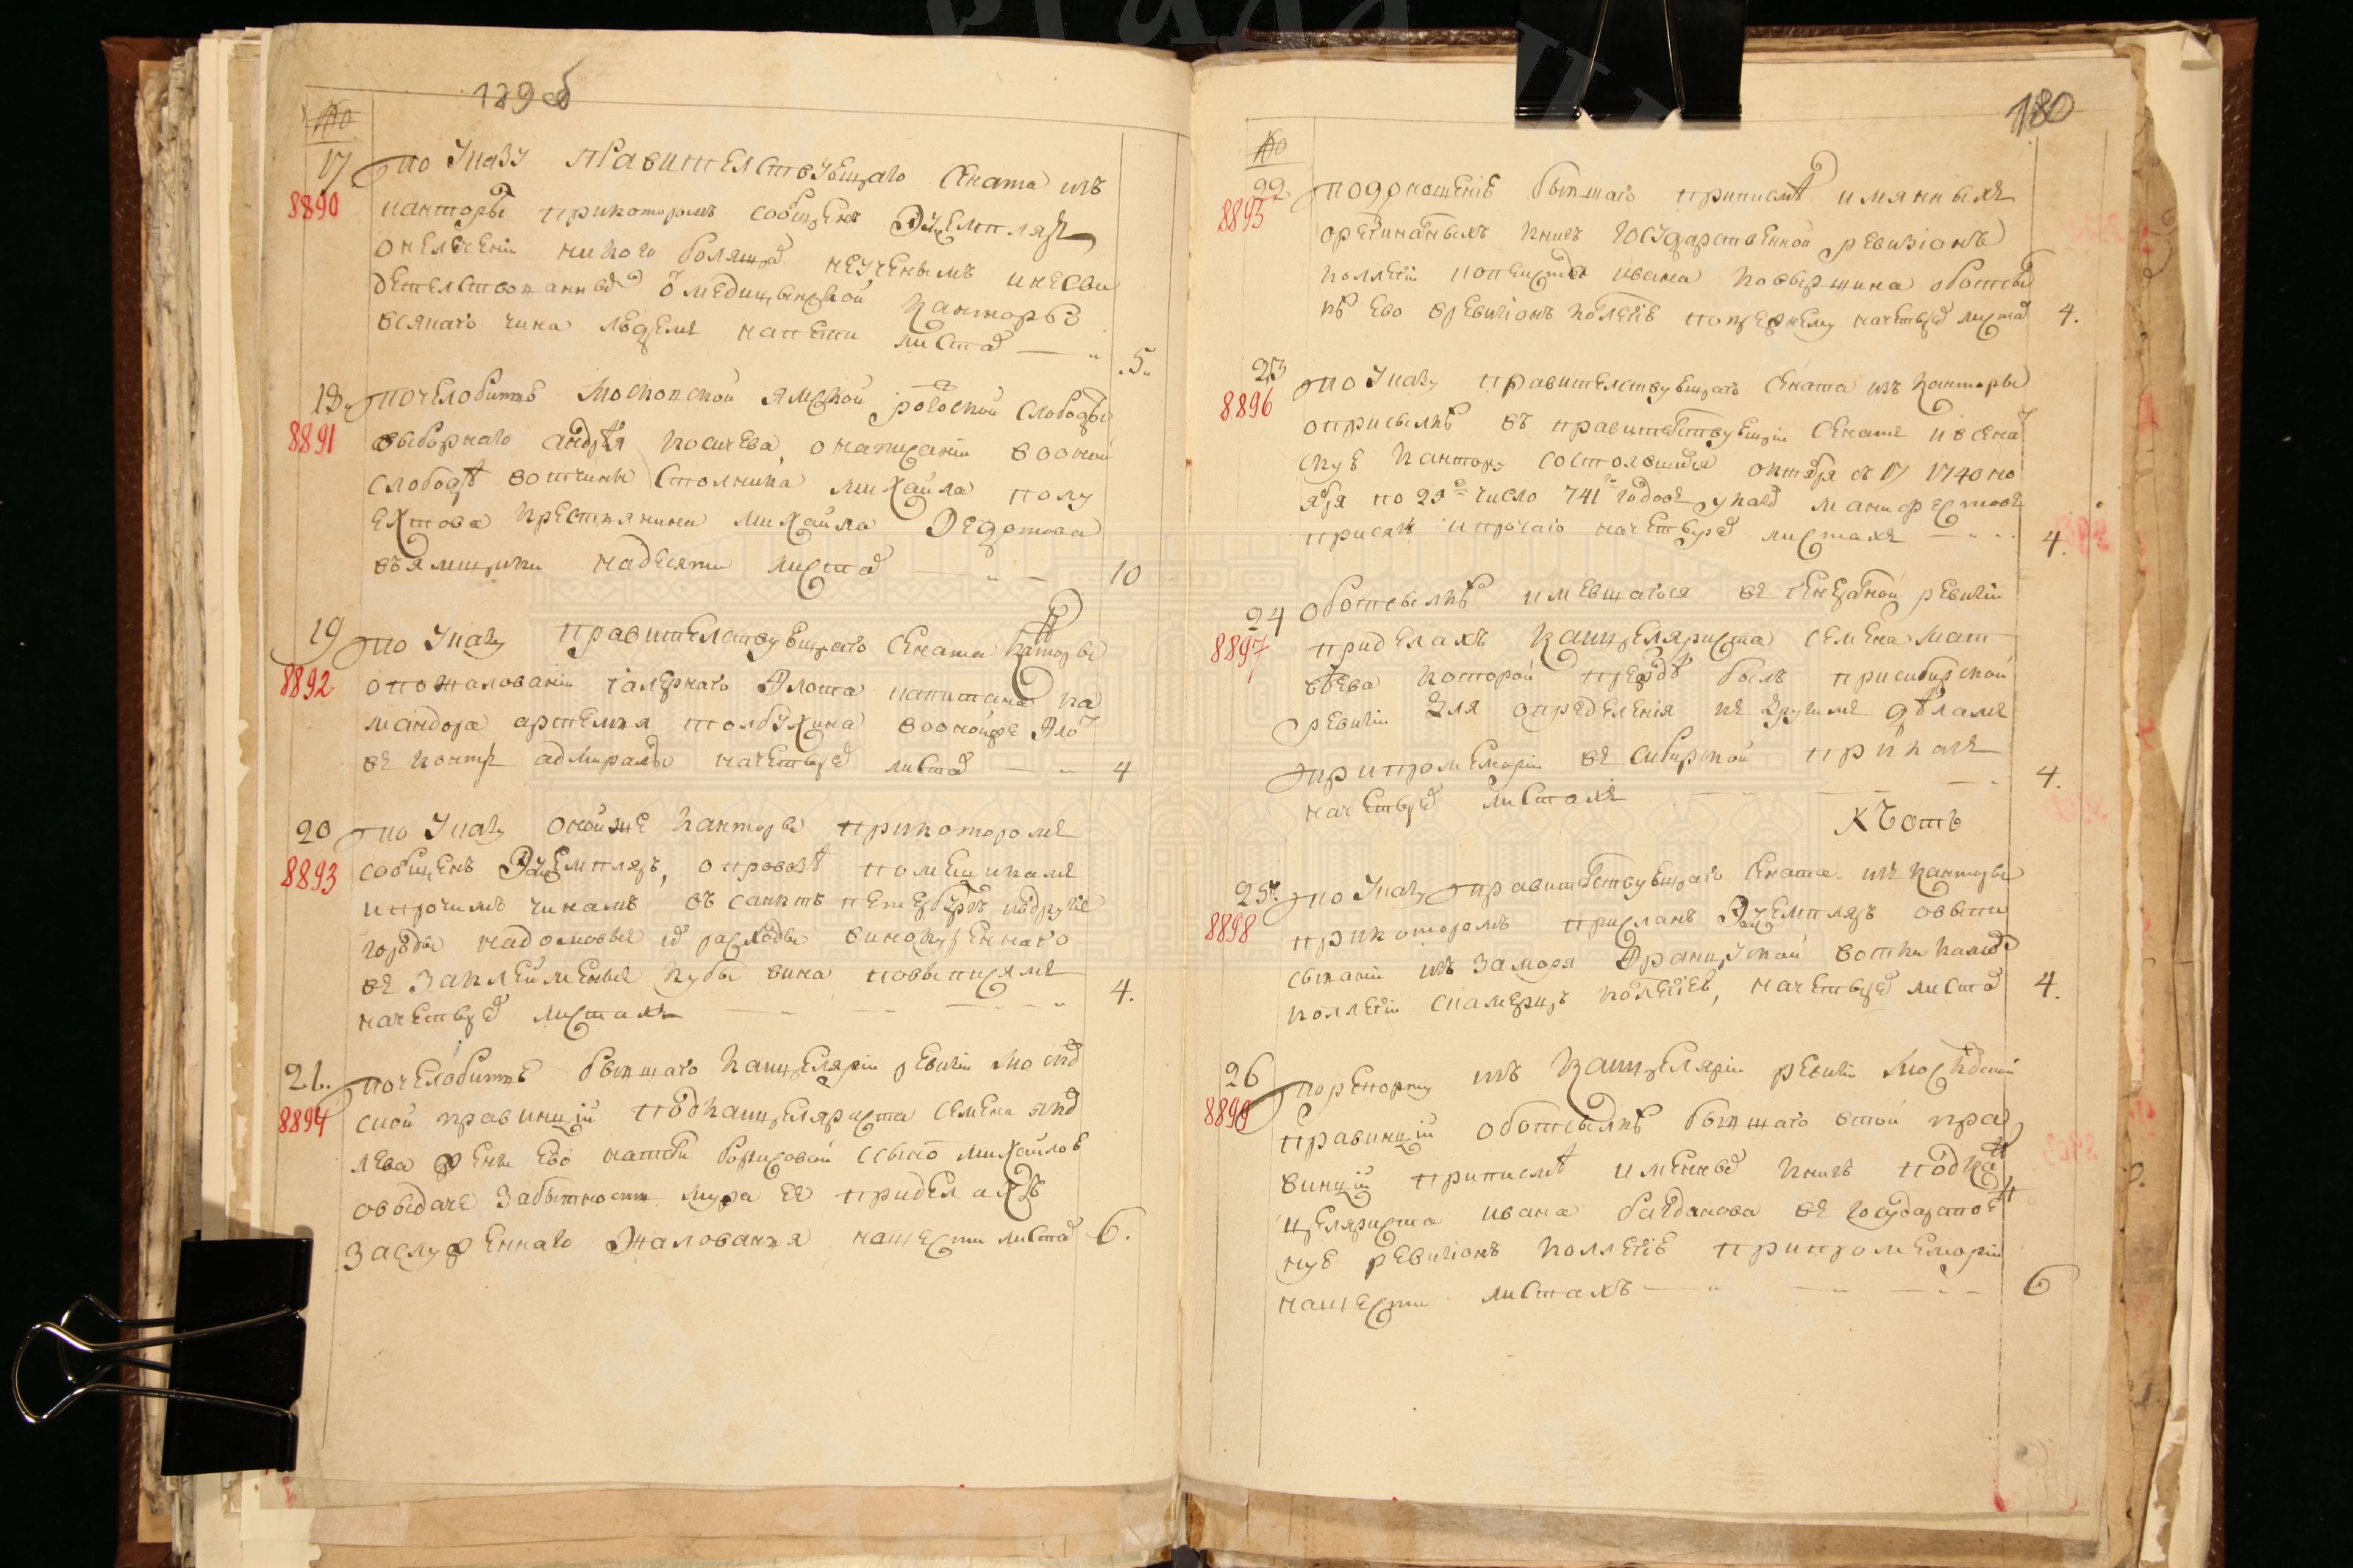 189 об
№
17 по указу правителствующаго сената изъ
8890 канторы прикоторомъ сообщенъ эѯемпляръ
онелечении никого боляща неученымъ инесви
детелствованныъ ѿ медицынской канторы
всякаго чина людемъ напети листа .5.
18. почелобитью московской ямской рогоской слободы
8891 выборнаго андрѣя косичева, онаписании воонои
слободѣ вотчины столника михаила полу
ехтова крестьянина михаила Федотова
въямщики надесяти листа 10
19 по указу правителствующаго сената канторы
8892 опожаловании галернаго Флота капитана ка
мандора артемья толбухина воономже Фло
въ контръ адмиралы начетырех листа 4
20 по указу оной же канторы прикоторомъ
8893 сообщенъ эѯемпляръ, опровозѣ помещикамъ
ипрочимъ чинамъ въ санктъ петербурхъ идругие
городы надомовые их расходы винокуренаго
въ заклейменые кубы вина повыписямъ
начетырех листахъ 4.
21. почелобитью бывшаго канцелярии ревизии моско
8894 ской правинции подканцеляриста семена яко
лева жены ево настасьи борисовой ссыно михайлов
овыдаче забытность мужа ее приделахъ
заслуженнаго жалованья нашести листа 6.
180
№
22 подоношению бывшаго приписмѣ имянныхъ
8895 оригиналныхъ книгъ государственной ревизионъ
коллегии копеиста ивана ковыршина оботсы
кѣ ево вревизионъ колегию попрежнему начетырех листа 4.
23 по указу правителствующаго сената изъ канторы
8896 оприсылкѣ въ правителствующии сенатъ ивсена
скую кантору состоявшихся октября съ 17 1740 но
ября по 29е число 741го годовъ указо манифестовъ
присягъ ипрочаго начетырех листахъ 4.
24 оботсылкѣ имевшагося въ генералной ревизии
8897 приделахъ канцеляриста семена мат
вѣева которой прежде былъ присибирской
ревизии для определения къ другимъ дѣламъ
припромемории въ сибирской приказъ
начетырех листахъ 4.
КЪ отъ
25. по указу правителствующаго сената изъ канторы
8898 прикоторомъ присланъ эѯемпляръ овыпи
сывании изъ заморя Француской вотки камо
коллегии скамерцъ колегиею, начетырех листа 4.
26 порепорту изъ канцелярии ревизии московской
8899 правинции оботсылкѣ бывшаго втой пра
винции приписмѣ именныхъ книгъ подкан
целяриста ивана багданова въ государствен
ную ревизионъ коллегию припромемории
нашести листахъ 6